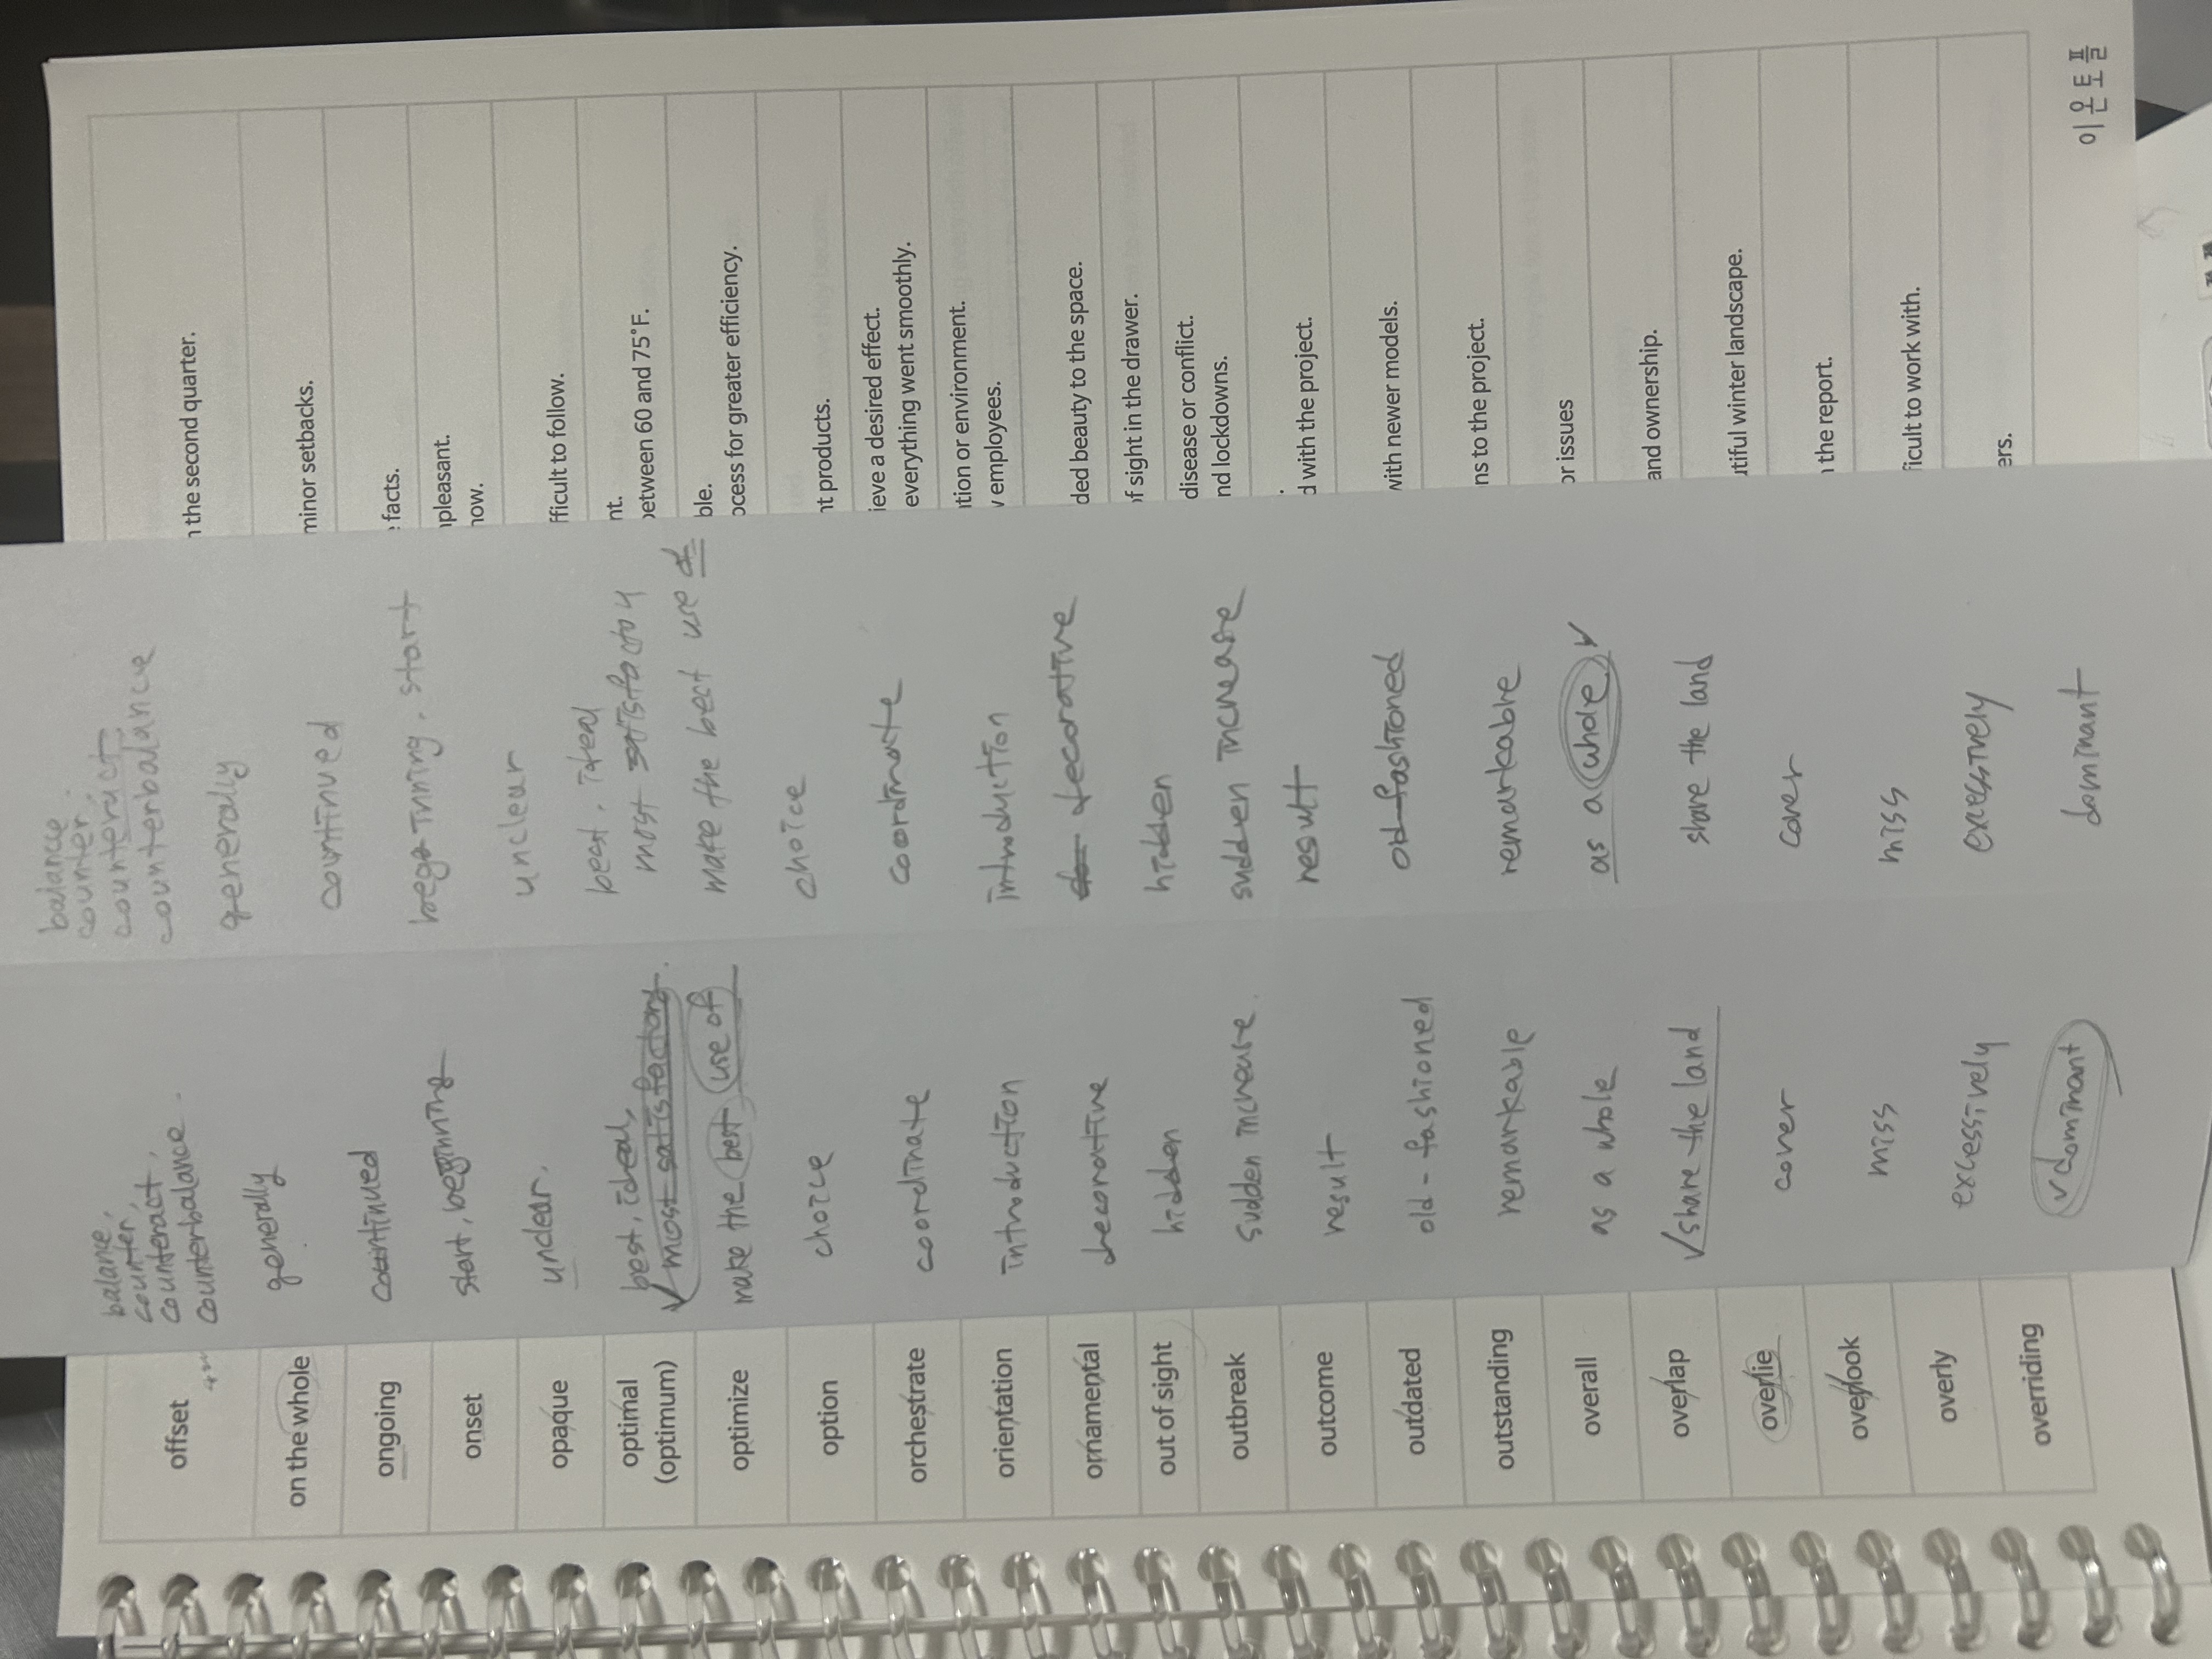 offset
balance,
counter,
counteract,
counterbalance.
balance.
counter.
counteract
counterbalance
the second quarter.
on the whole
generally
generally
minor setbacks.
ongoing
continued
continued
facts.
onset
start, beginning
beginning. start
pleasant.
now.
opaque
unclear.
unclear
fficult to follow.
optimal
(optimum)
best, ideal,
most satisfactory.
best. ideal
most satisfactory
nt.
between 60 and 75°F.
optimize
make the best use of
make the best use of
ble.
ocess for greater efficiency.
option
choice
choice
nt products.
orchestrate
coordinate
coordinate
ieve a desired effect.
everything went smoothly.
orientation
introduction
introduction
tion or environment.
employees.
ornamental
decorative
decorative
ded beauty to the space.
out of sight
hidden
hidden
of sight in the drawer.
outbreak
sudden increase.
sudden increase
disease or conflict.
nd lockdowns.
outcome
result
result
d with the project.
outdated
old-fashioned
old-fashioned
with newer models.
outstanding
remarkable
remarkable
ns to the project.
overall
as a whole
as a whole
or issues
overlap
share the land
share the land
and ownership.
overlie
cover
cover
utiful winter landscape.
overlook
miss
miss
the report.
overly
excessively
excessively
ficult to work with.
overriding
dominant
dominant
ers.
이은토플